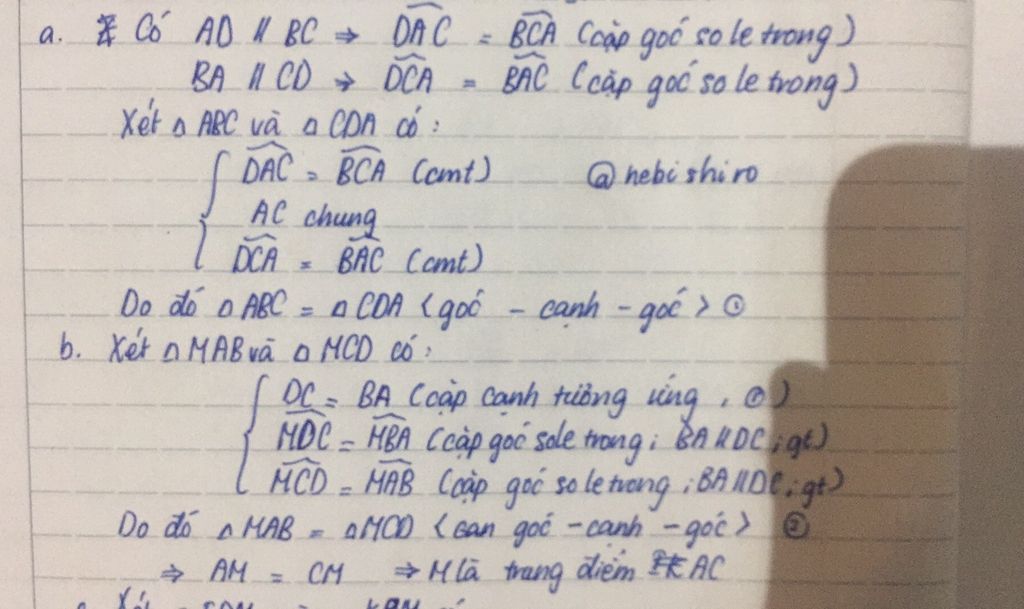 a. Có AD // BC ⇒ DAC = BCA (cặp góc so le trong)
BA // CD ⇒ DCA = BAC (cặp góc so le trong)
Xét △ ABC và △ CDA có :
DAC = BCA (cmt) @nebishiro
AC chung
DCA = BAC (cmt)
Do đó △ ABC = △ CDA < góc - cạnh - góc > ①
b. Xét △ MAB và △ MCD có :
DC = BA (cặp cạnh tương ứng , ①)
MDC = MBA (cặp góc so le trong ; BA // DC ; gt)
MCD = MAB (cặp góc so le trong ; BA // DC ; gt)
Do đó △ MAB = △ MCD < góc - cạnh - góc > ②
⇒ AM = CM ⇒ M là trung điểm AC